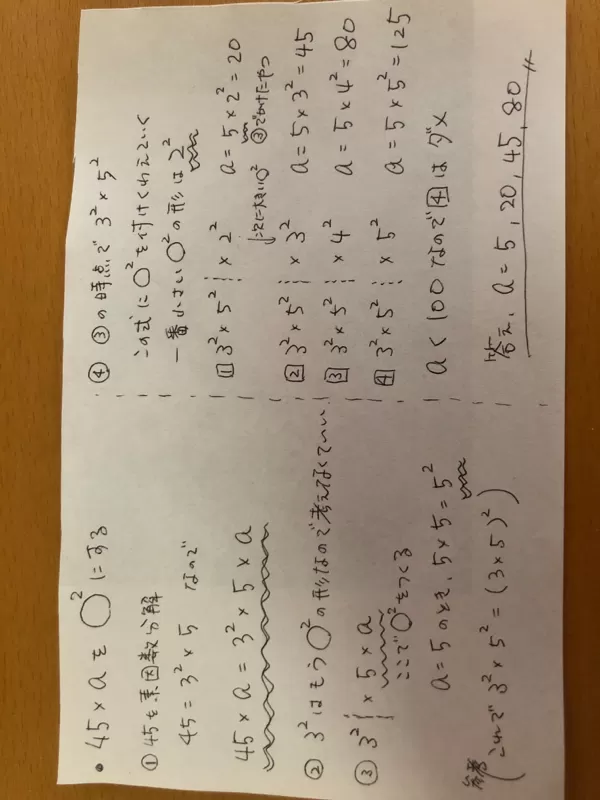 • 45×aを○²にする
① 45を素因数分解
45=3²×5 なので
45×a=3²×5×a
② 3²はもう○²の形なので考えなくていい
③ 3²×5×a
ここで○²をつくる
a=5のとき、5×5=5²
(これで3²×5²=(3×5)²)
④ ③の時点で3²×5²
この式に○²を付けくわえていく
一番小さい○²の形は2²
1 3²×5²×2² a=5×2²=20
次に大きい○² ③でかけたやつ
2 3²×5²×3² a=5×3²=45
3 3²×5²×4² a=5×4²=80
4 3²×5²×5² a=5×5²=125
a<100なので4はダメ
答え、a=5,20,45,80